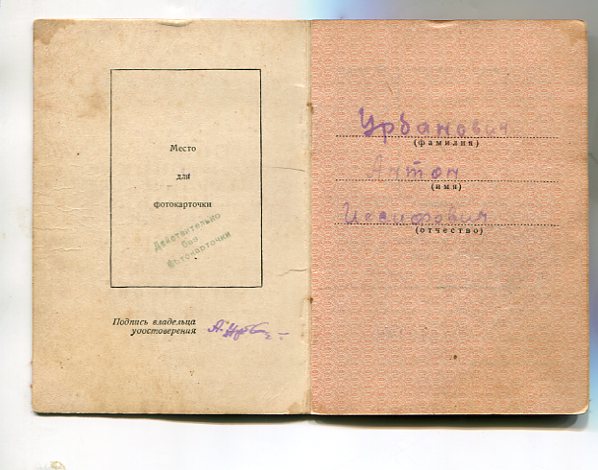 Место
для
фотокарточки
Действительно
без
фотокарточки
Подпись владельца
удостоверения
А. Урб
Урбанович
(фамилия)
Антон
(имя)
Иосифович
(отчество)